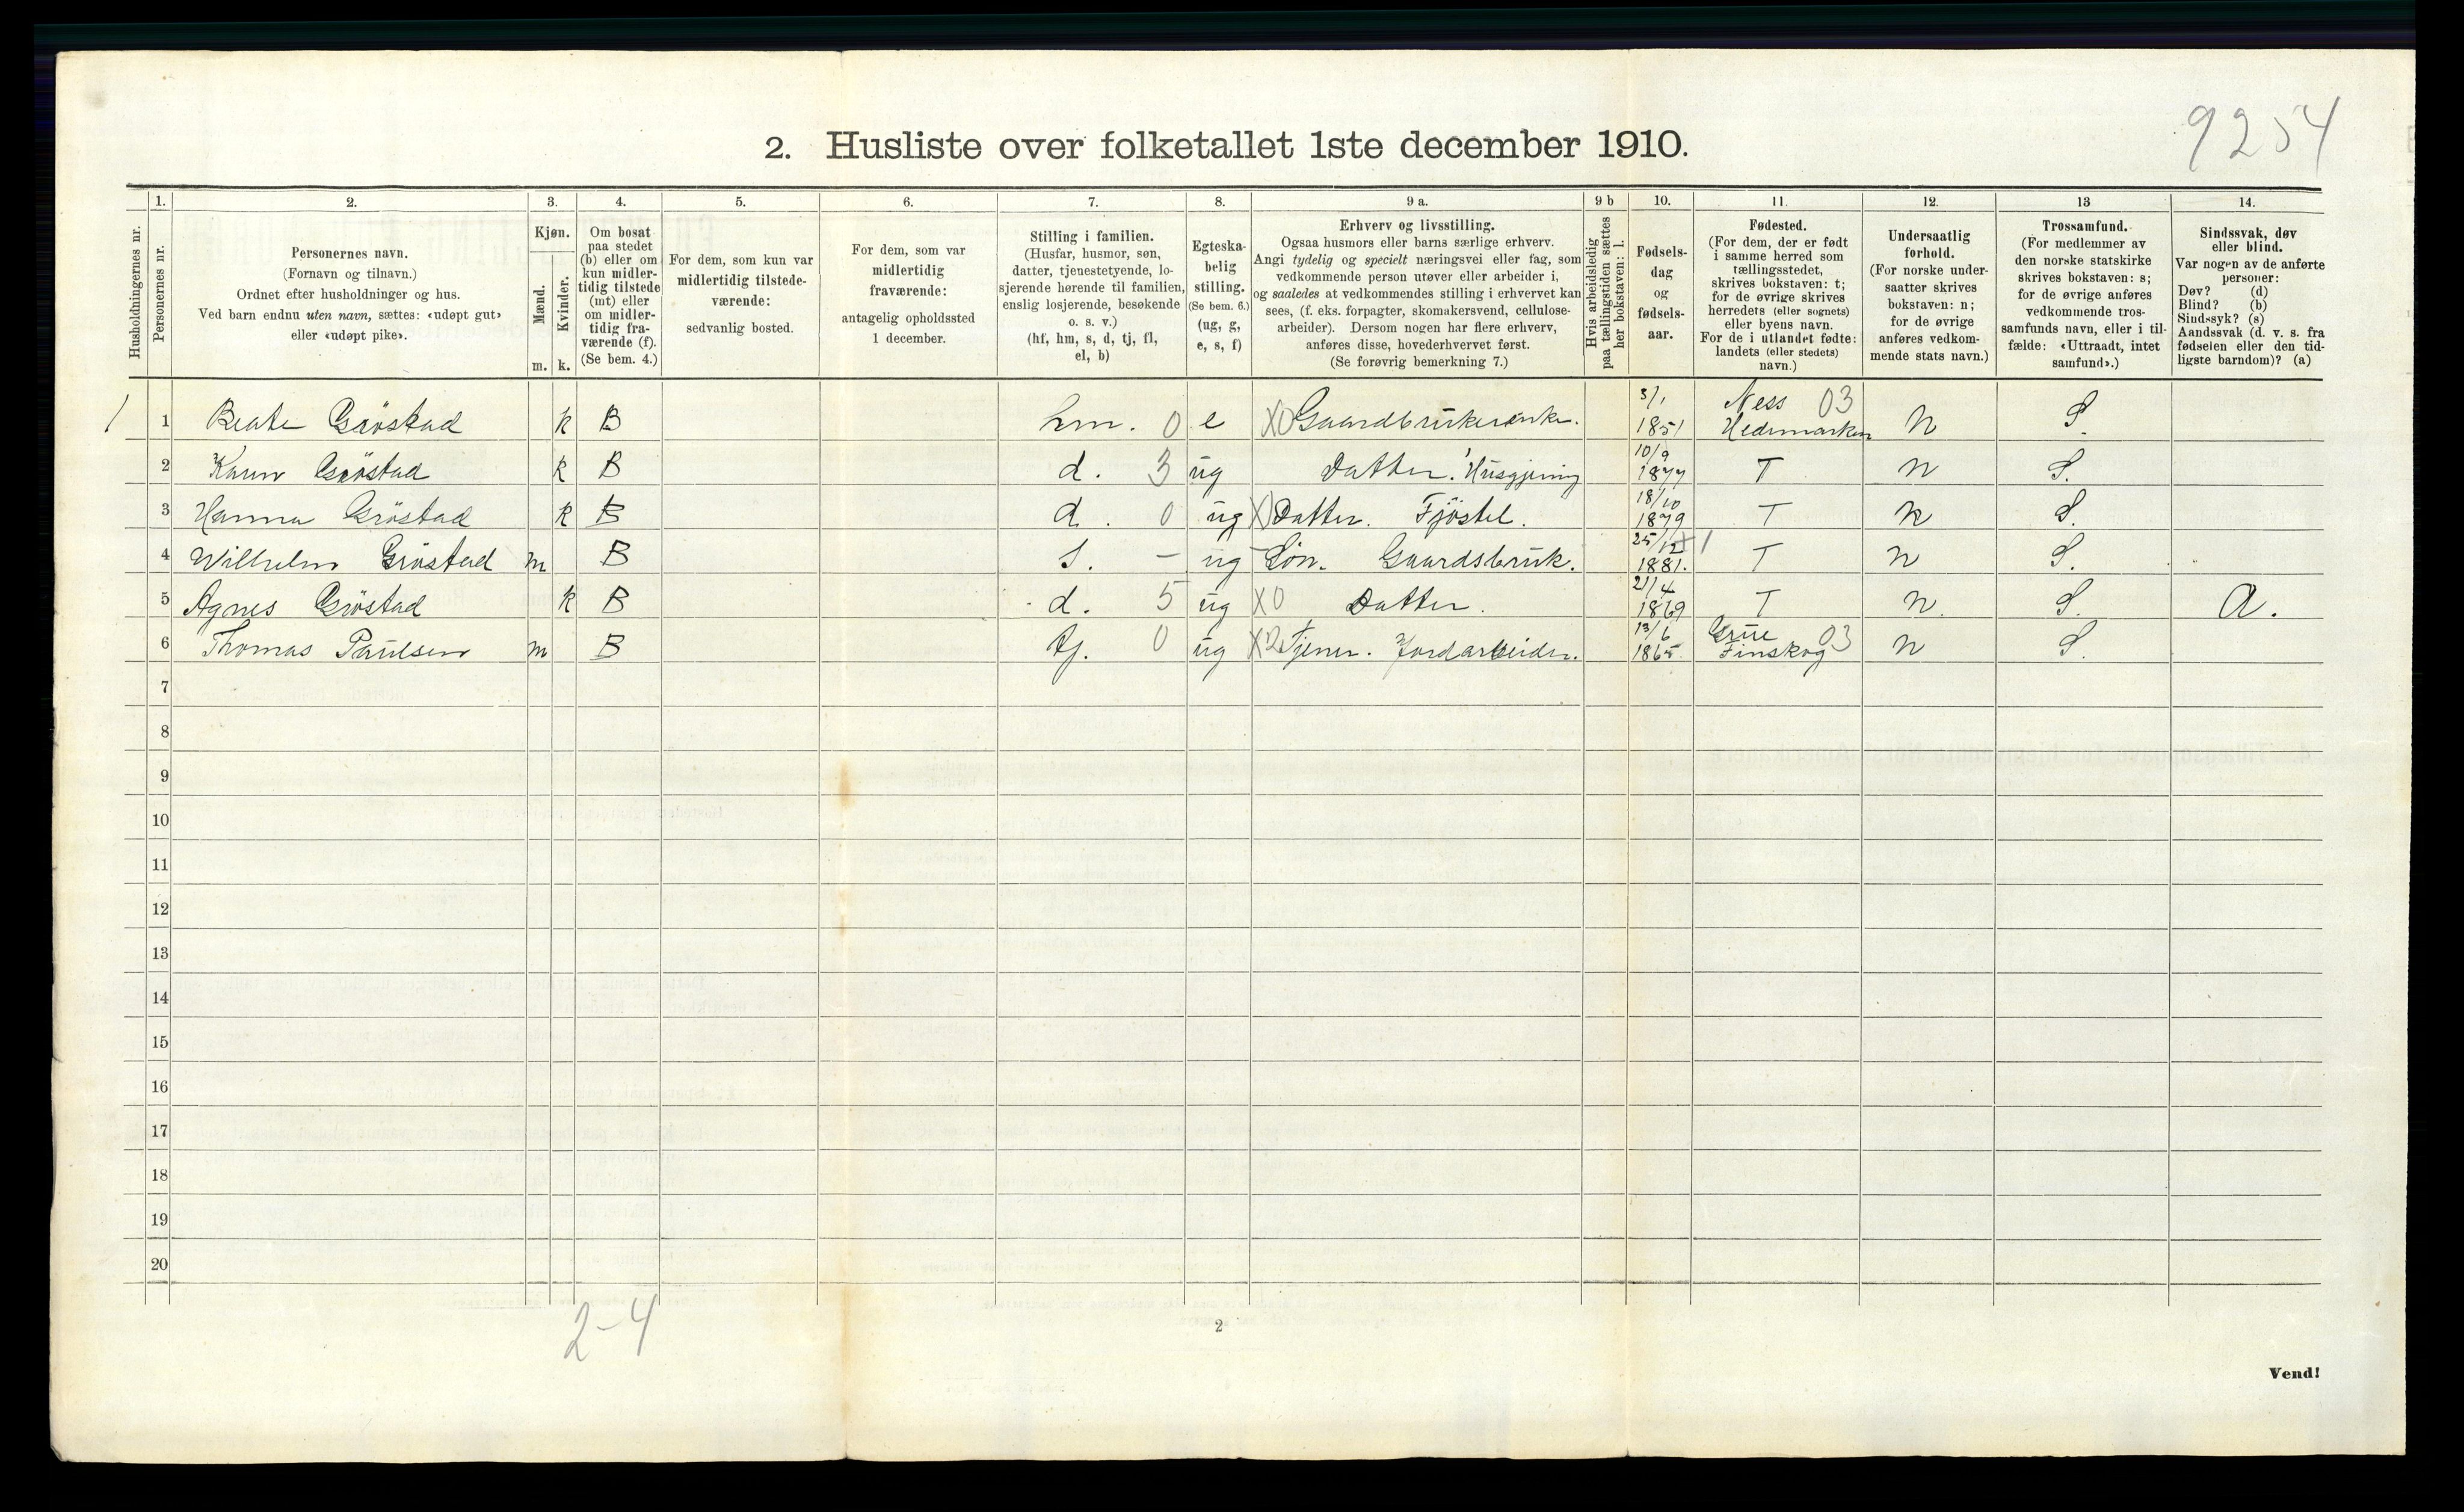 9254
2. Husliste over folketallet 1ste december 1910.
Husholdningernes nr.
1.
Personernes nr.
2.
Personernes navn.
(Fornavn og tilnavn.)
Ordnet efter husholdninger og hus.
Ved barn endnu uten navn, sættes: «udøpt gut»
eller «udøpt pike».
3.
Kjøn.
Mænd.
Kvinder.
m. k.
4.
Om bosat
paa stedet
(b) eller om
kun midler-
tidig tilstede
(mt) eller
om midler-
tidig fra-
værende (f).
(Se bem. 4.)
5.
For dem, som kun var
midlertidig tilstede-
værende:
sedvanlig bosted.
6.
For dem, som var
midlertidig
fraværende:
antagelig opholdssted
1 december.
7.
Stilling i familien.
(Husfar, husmor, søn,
datter, tjenestetyende, lo-
sjerende hørende til familien,
enslig losjerende, besøkende
o. s. v.)
(hf, hm, s, d, tj, fl,
el, b)
8.
Egteska-
belig
stilling.
(Se bem. 6.)
(ug, g,
e, s, f)
9 a.
Erhverv og livsstilling.
Ogsaa husmors eller barns særlige erhverv.
Angi tydelig og specielt næringsvei eller fag, som
vedkommende person utøver eller arbeider i,
og saaledes at vedkommendes stilling i erhvervet kan
sees, (f. eks. forpagter, skomakersvend, cellulose-
arbeider). Dersom nogen har flere erhverv,
anføres disse, hovederhvervet først.
(Se forøvrig bemerkning 7.)
9 b
Hvis arbeidsledig
paa tællingstiden sættes
her bokstaven: l.
10.
Fødsels-
dag
og
fødsels-
aar.
11.
Fødested.
(For dem, der er født
i samme herred som
tællingsstedet,
skrives bokstaven: t;
for de øvrige skrives
herredets (eller sognets)
eller byens navn.
For de i utlandet fødte:
landets (eller stedets)
navn.)
12.
Undersaatlig
forhold.
(For norske under-
saatter skrives
bokstaven: n;
for de øvrige
anføres vedkom-
mende stats navn.)
13
Trossamfund.
(For medlemmer av
den norske statskirke
skrives bokstaven: s;
for de øvrige anføres
vedkommende tros-
samfunds navn, eller i til-
fælde: «Uttraadt, intet
samfund».)
14.
Sindssvak, døv
eller blind.
Var nogen av de anførte
personer:
Døv? (d)
Blind? (b)
Sindssyk? (s)
Aandssvak (d. v. s. fra
fødselen eller den tid-
ligste barndom)? (a)
1 1 Beate Gröstad k B hm. 0 e X0 Gaardbrukerenke. 3/1 1851 Ness 03 Hedemarken N S.
2 Karen Gröstad k B d. 3 ug Datter. Husgjerning 10/9 1877 T N S.
3 Hanna Gröstad k B d. 0 ug X Datter. Fjöstel. 18/10 1879 T N S.
4 Wilhelm Gröstad m B S. - ug Sön. Gaardsbruk. 25/12 1881. T N S.
5 Agnes Gröstad k B d. 5 ug X0 Datter. 21/4 1869 T N. S. A.
6 Thomas Paulsen m B tj. 0 ug X2 Tjener. Jordarbeider. 13/6 1865. Grue 03 Finskog N S.
7
8
9
10
11
12
13
14
15
16
17
18
19
20
2-4
2
Vend!